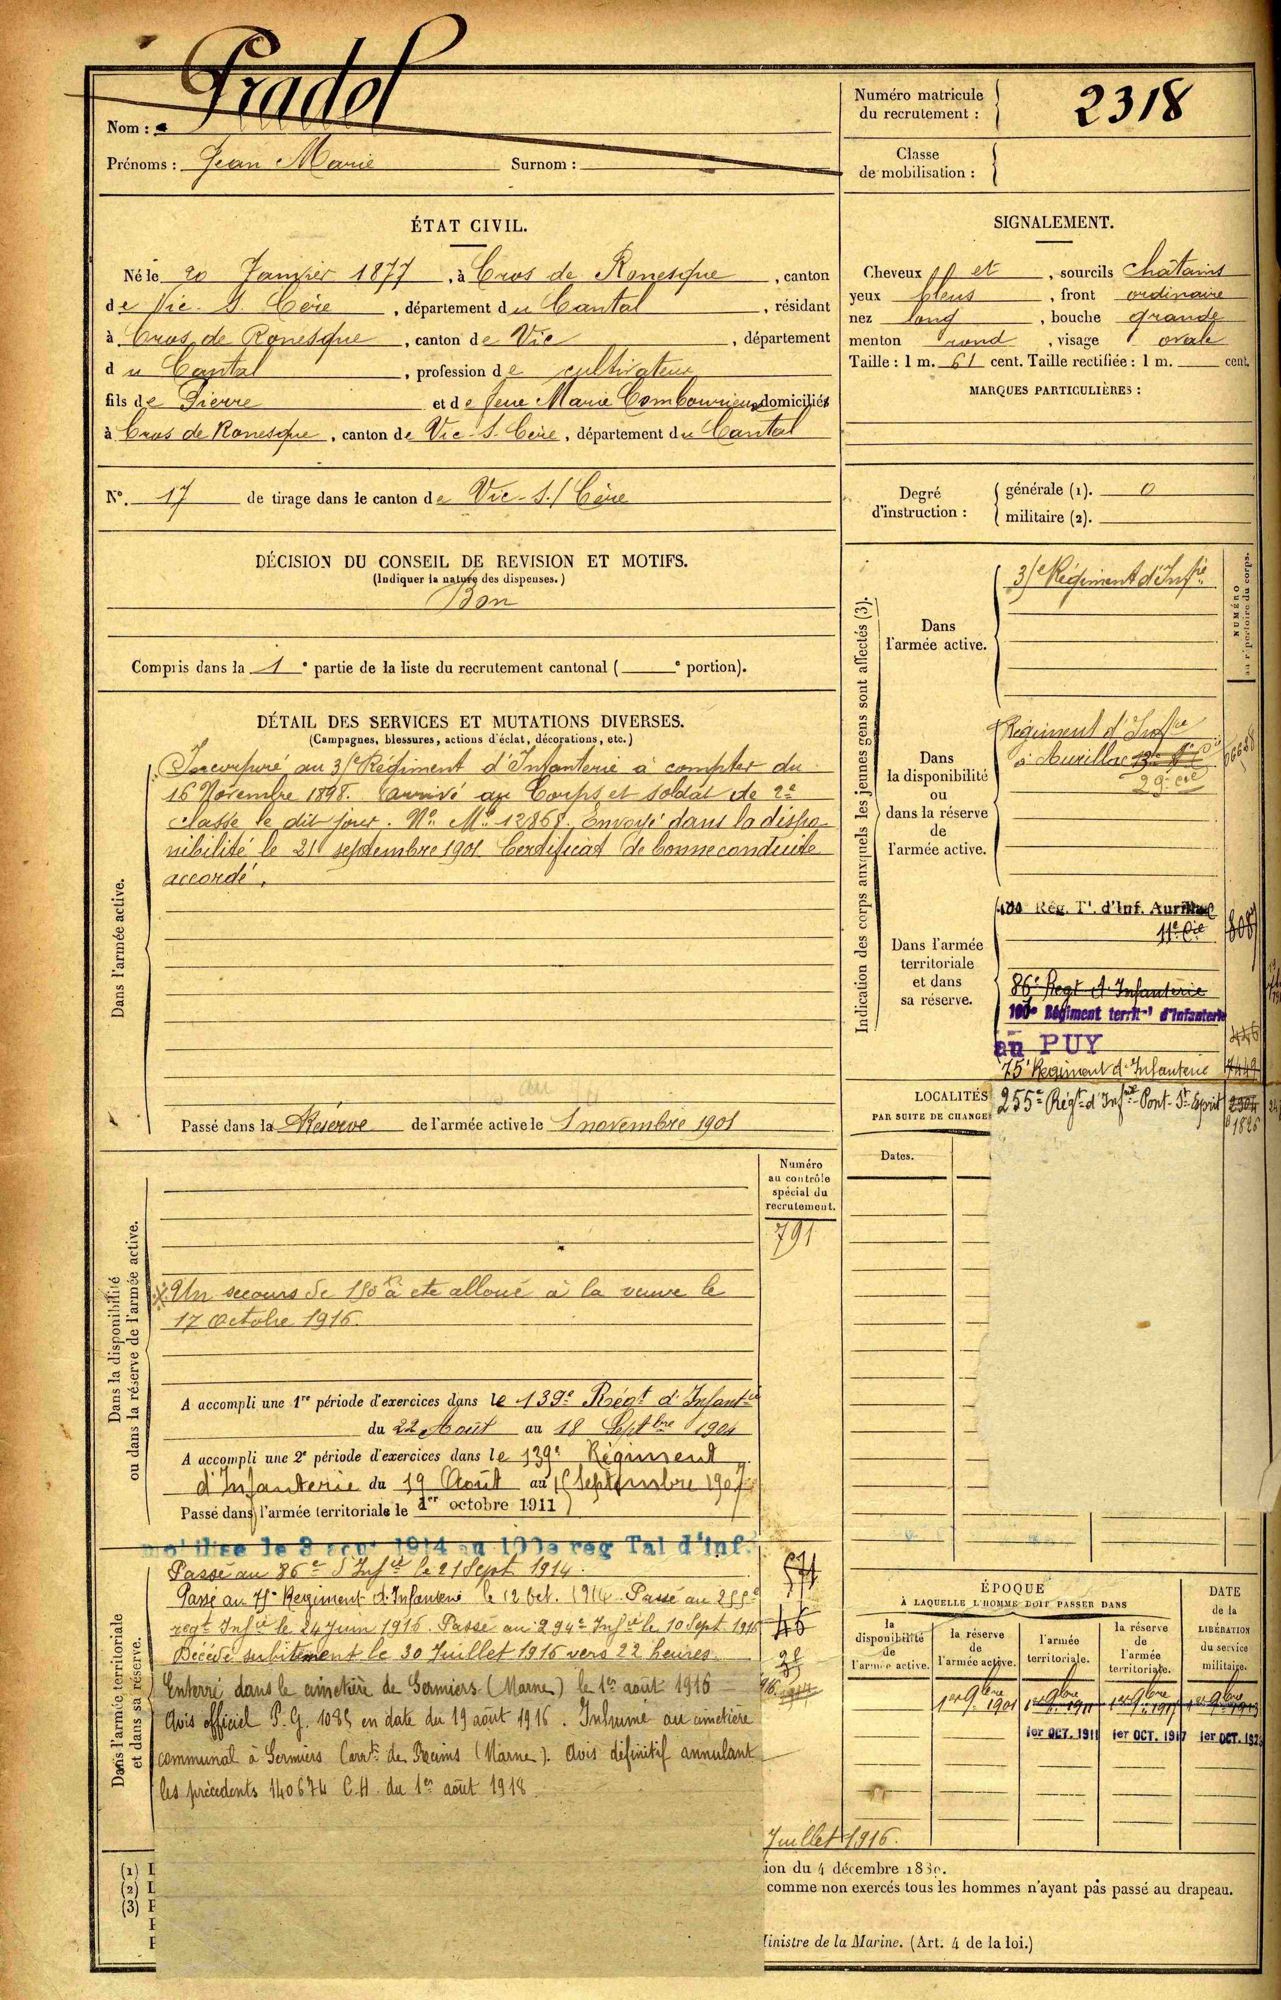 Nom : Pradel
Prénoms : Jean Marie Surnom :
Numéro matricule
du recrutement : 2318
Classe
de mobilisation :
ÉTAT CIVIL.
Né le 20 Janvier 1877, à Cros de Ronesque, canton
de Vic-S. Cère, département du Cantal, résidant
à Cros de Ronesque, canton de Vic, département
du Cantal, profession de cultivateur
fils de Pierre et de feue Marie Combourieu, domiciliés
à Cros de Ronesque, canton de Vic-S. Cère, département du Cantal
N°. 17 de tirage dans le canton de Vic-S./Cère
DÉCISION DU CONSEIL DE REVISION ET MOTIFS.
(Indiquer la nature des dispenses.)
Bon
Compris dans la 1e partie de la liste du recrutement cantonal ( e portion).
SIGNALEMENT.
Cheveux et, sourcils châtains
yeux bleus, front ordinaire
nez long, bouche grande
menton rond, visage ovale
Taille : 1 m. 61 cent. Taille rectifiée : 1 m. cent.
MARQUES PARTICULIÈRES :
Degré
d'instruction :
générale (1). 0
militaire (2).
DÉTAIL DES SERVICES ET MUTATIONS DIVERSES.
(Campagnes, blessures, actions d'éclat, décorations, etc.)
Dans l'armée active.
Incorporé au 3e Régiment d'Infanterie à compter du
16 Novembre 1898. Arrivé au Corps et soldat de 2e
classe le dit jour. N° Mle 12868. Envoyé dans la dispo-
nibilité le 21 septembre 1901 Certificat de bonne conduite
accordé.
Passé dans la Réserve de l'armée active le 1 novembre 1901
Indication des corps auxquels les jeunes gens sont affectés (3).
NUMÉRO
au répertoire du corps.
Dans
l'armée active.
3e Régiment d'Infie
Dans
la disponibilité
ou
dans la réserve
de
l'armée active.
Régiment d'Infie
à Aurillac
29e cie
Dans l'armée
territoriale
et dans
sa réserve.
100 Rég. T. d'Inf. Aurillac
11e Cie
86e Regt d'Infanterie
100e Régiment territ-l d'Infanterie
au PUY
75e Regiment d'Infanterie
255e Régt d'Infie Pont-St Esprit
1826
LOCALITÉS
PAR SUITE DE CHANGE
Dates.
Dans la disponibilité
ou dans la réserve de l'armée active.
Numéro
au contrôle
spécial du
recrutement.
791
Un secours de 150 fr a été alloué à la veuve le
17 Octobre 1916.
A accompli une 1re période d'exercices dans le 139e Régt d'Infantie
du 22 Août au 18 Septbre 1904
A accompli une 2e période d'exercices dans le 139e Régiment
d'Infanterie du 19 Août au 15 Septembre 1907
Passé dans l'armée territoriale le 1er octobre 1911
Dans l'armée territoriale
et dans sa réserve.
mobilise le 3 aout 1914 au 100e reg Tal d'inf.
Passé au 86e d'Infie le 21 Sept 1914. 571
Passé au 75e Regiment d'Infanterie le 12 Oct. 1914. Passé au 255e
regt Infie le 24 Juin 1916. Passé au 294e Infie le 10 Sept 1916 46
Décédé subitement le 30 Juillet 1916 vers 22 heures.
Enterré dans le cimetière de Sermiers (Marne) le 1er août 1916
Avis officiel P.G. 1035 en date du 19 aout 1916. Inhumé au cimetière
communal à Sermiers Cant. de Reims (Marne). Avis définitif annulant
les précédents 140674 C.H. du 1er août 1918
Juillet 1916.
ÉPOQUE
A LAQUELLE L'HOMME DOIT PASSER DANS
la
disponibilité
de
l'armée active.
la réserve
de
l'armée active.
l'armée
territoriale.
la réserve
de
l'armée
territoriale.
DATE
de la
LIBÉRATION
du service
militaire.
1er 9bre 1901 1er 9bre 1911 1er 9bre 1917
1er OCT. 1911 1er OCT. 1917 1er OCT. 1923
(1) I
(2) I
(3) F
F
F
ion du 4 décembre 1889.
comme non exercés tous les hommes n'ayant pas passé au drapeau.
Ministre de la Marine. (Art. 4 de la loi.)